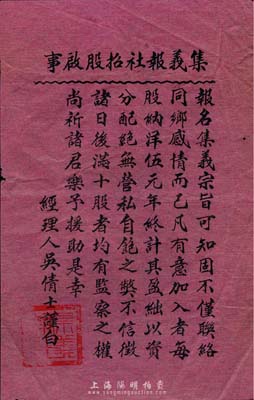 集義報社招股啟事
報名集義宗旨可知固不僅聯絡
同鄉感情而已凡有意加入者每
股納洋伍元年終計其盈絀以資
分配絕無營私自飽之獘不信徵
諸日後滿十股者均有監察之權
尚祈諸君樂予援助是幸
經理人吳倩士謹白
上海陽明拍賣
www.yangmingauction.com